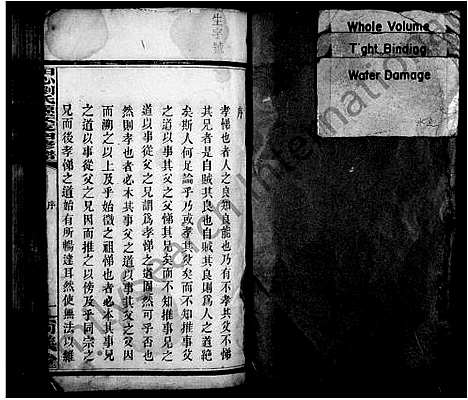 Whole Volume
Tight Binding
Water Damage
生字號
序
孝悌也者人之良知良能也乃有不孝其父不悌
其兄者是自賊其良也自賊其良則為人之道絕
矣斯人何足論乎乃或孝其父矣而不知推事父
之道以事其父之父悌其兄矣而不知推事兄之
道以事從父之兄謂為孝悌之道固然可乎否也
然則孝也者必本其事父之道以事其父之父因
而溯之以上及乎始徵之祖悌也者必本其事兄
之道以事從父之兄因而推之以傍及乎同宗之
兄而後孝悌之道始有所暢達耳然使無法以維
序